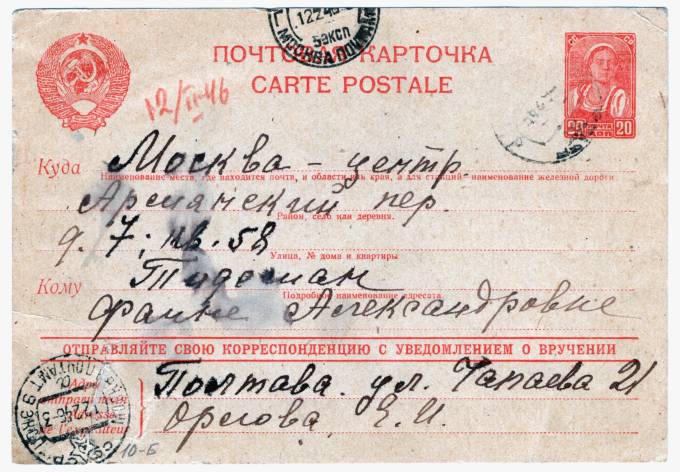 12 2 46
5 эксп
МОСКВА ПОЧТАМТ
ПОЧТОВАЯ КАРТОЧКА
CARTE POSTALE
12/II-46
20 ПОЧТА 20
Куда Москва - центр.
Наименование места, где находится почта, и области или края, а для станций-наименование железной дороги
Армянский пер.
Район, село или деревня.
д. 7; кв. 58
Улица, № дома и квартиры
Кому Тидеман
Подробное наименование адресата
Фаине Александровне
ОТПРАВЛЯЙТЕ СВОЮ КОРРЕСПОНДЕНЦИЮ С УВЕДОМЛЕНИЕМ О ВРУЧЕНИИ
Адрес отправителя
Adresse de l'expéditeur
Полтава. ул. Чапаева 21
Орлова, Е.И.
10-Б